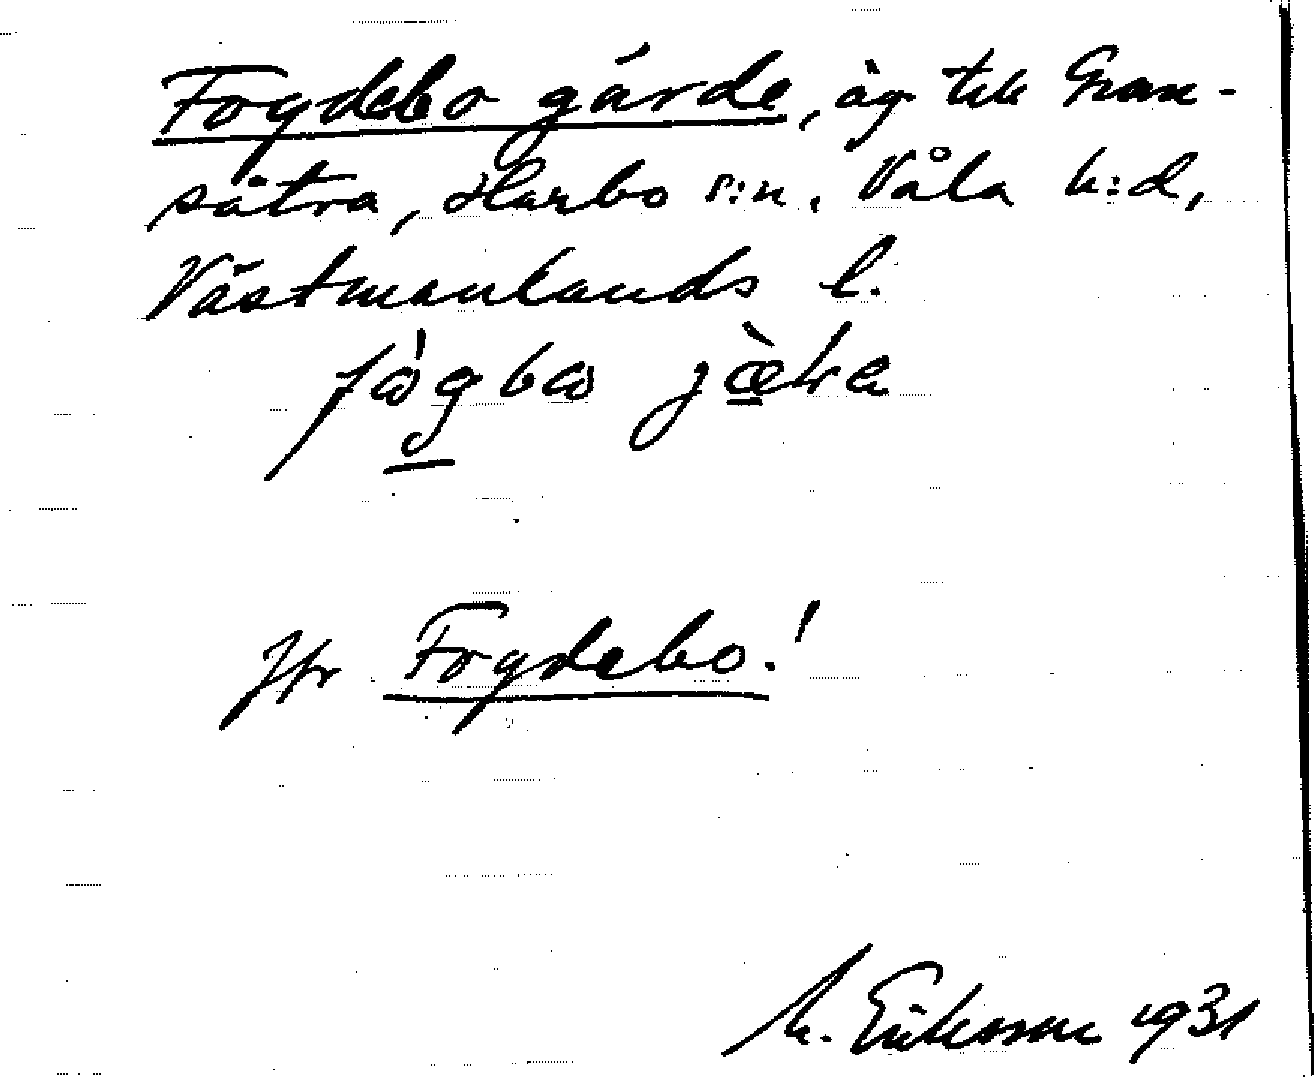 Fogdebo gärde, äg till Gran-
sätra, Harbo s:n, Våla h:d,
Västmanlands l.
Jfr Fogdebo!
M. Eriksson 1931